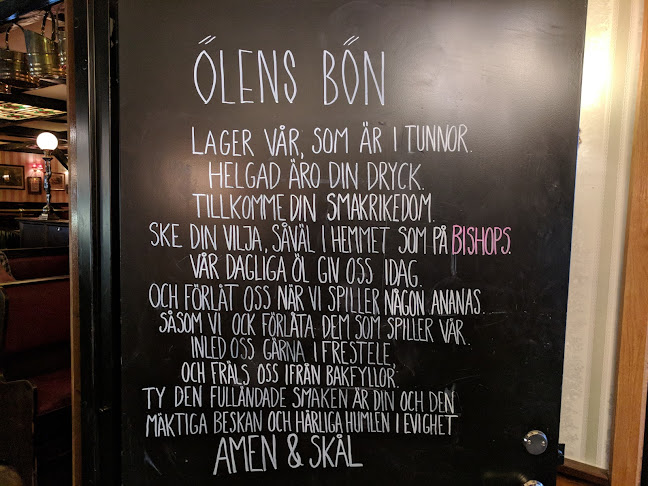 ÖLENS BÖN
LAGER VÅR, SOM ÄR I TUNNOR.
HELGAD ÄRO DIN DRYCK.
TILLKOMME DIN SMAKRIKEDOM.
SKE DIN VILJA, SÅVÄL I HEMMET SOM PÅ BISHOPS.
VÅR DAGLIGA ÖL GIV OSS IDAG.
OCH FÖRLÅT OSS NÄR VI SPILLER NÅGON ANANAS.
SÅSOM VI OCK FÖRLÅTA DEM SOM SPILLER VÅR.
INLED OSS GÄRNA I FRESTELE,
OCH FRÄLS OSS IFRÅN BAKFYLLOR.
TY DEN FULLÄNDADE SMAKEN ÄR DIN OCH DEN
MÄKTIGA BESKAN OCH HÄRLIGA HUMLEN I EVIGHET
AMEN & SKÅL